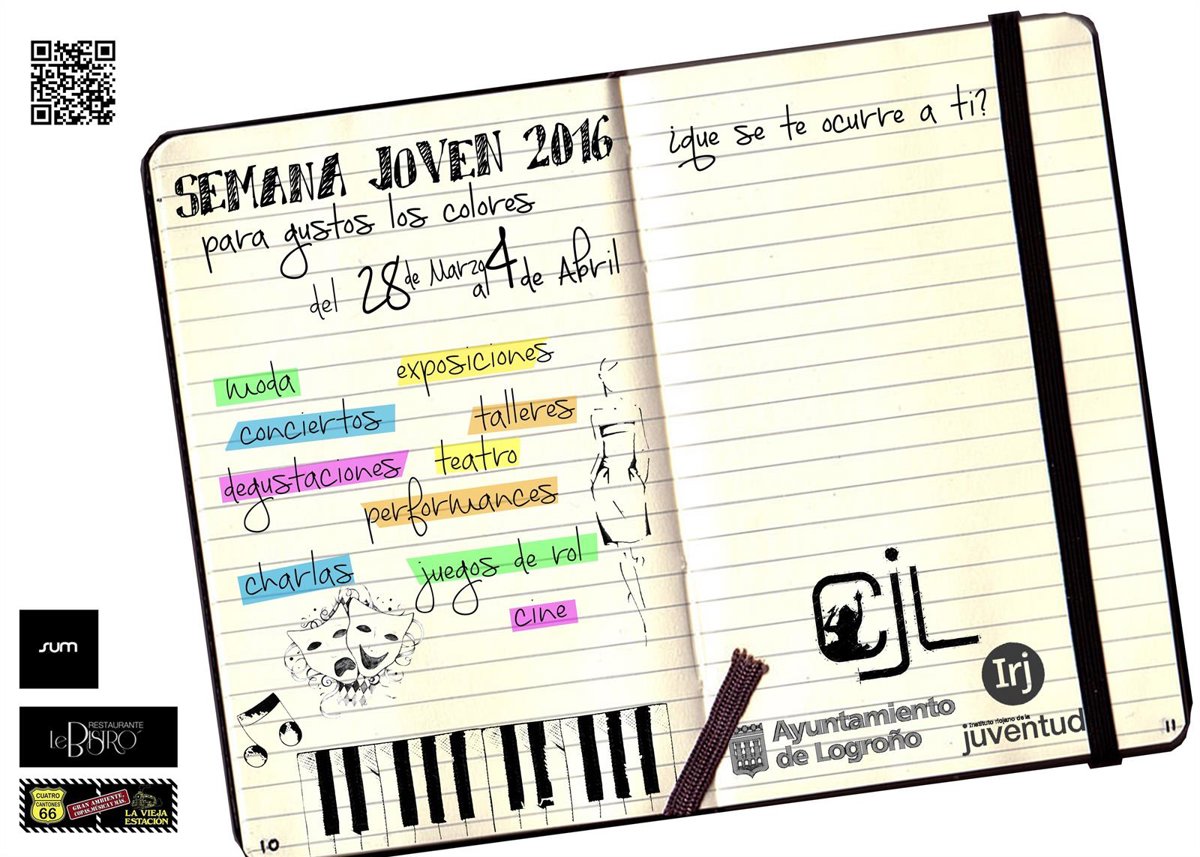 SEMANA JOVEN 2016
para gustos los colores
del 28 de Marzo al 4 de Abril
moda
exposiciones
conciertos
talleres
degustaciones
teatro
performances
charlas
juegos de rol
cine
10
¿que se te ocurre a ti?
CJL
Irj
Instituto riojano de la
juventud
Ayuntamiento
de Logroño
11
sum
RESTAURANTE
Le BISTRO
CUATRO
CANTONES
66
GRAN AMBIENTE,
COPAS, MÚSICA Y MÁS
LA VIEJA
ESTACIÓN